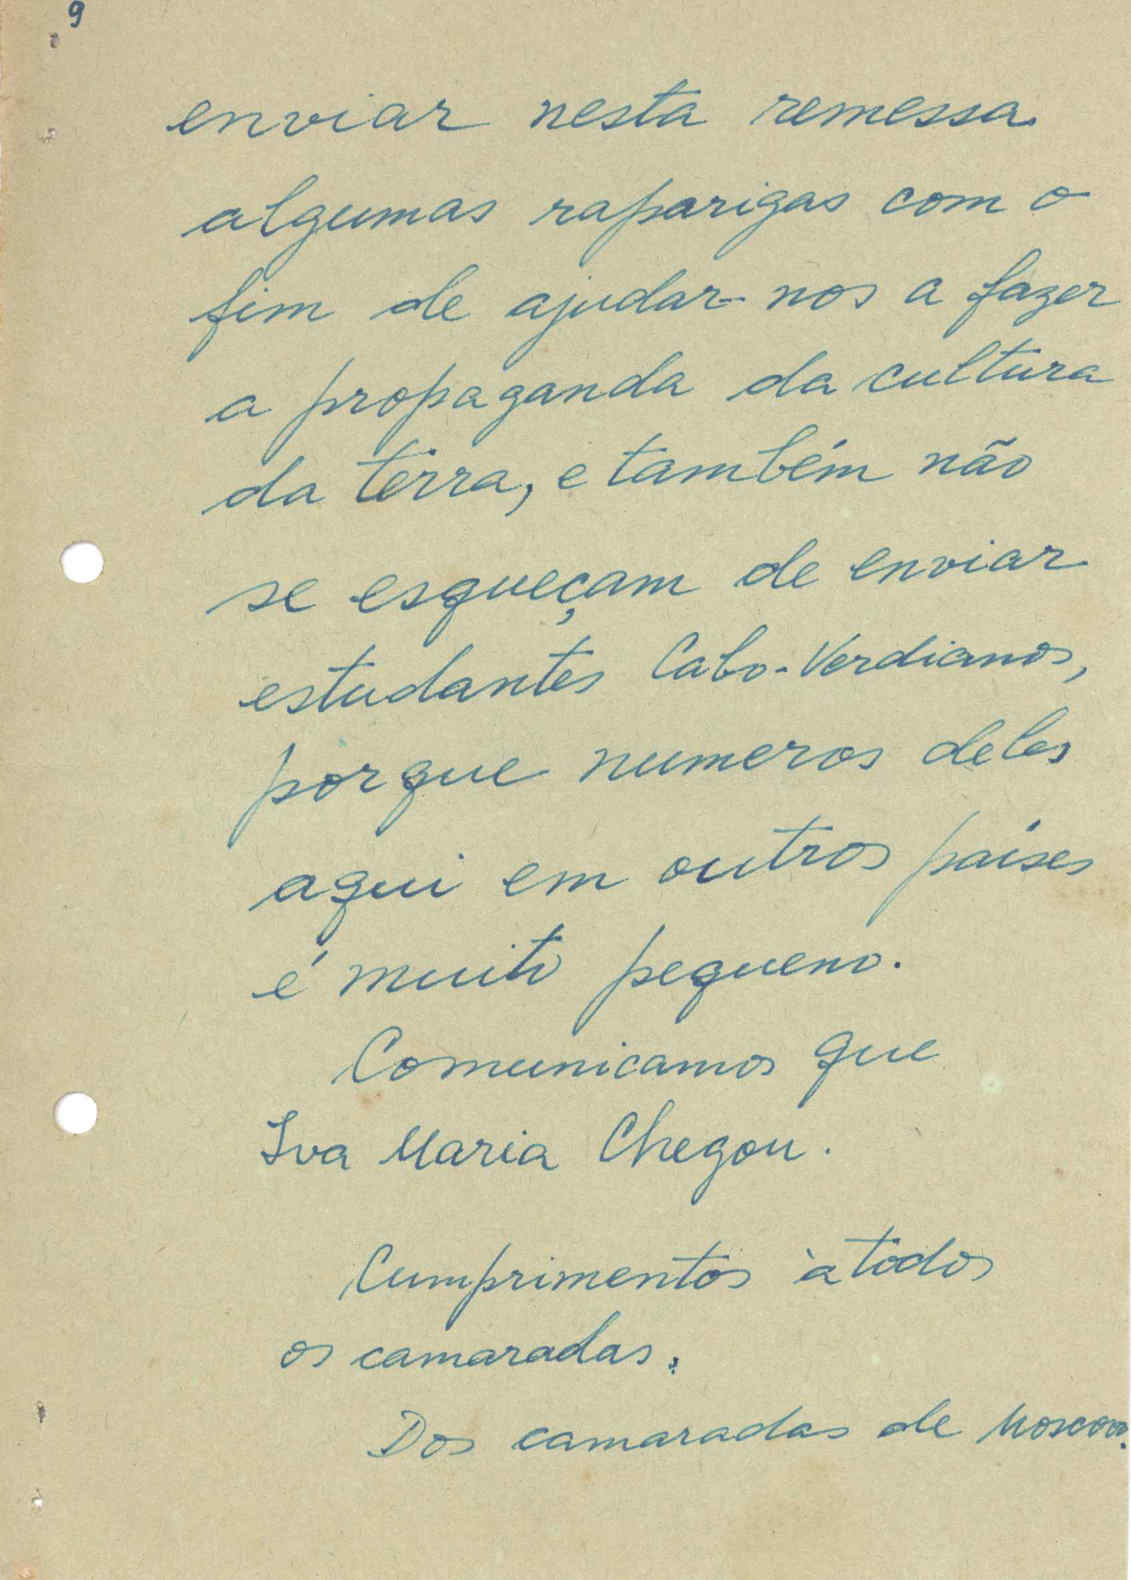 9
enviar nesta remessa
algumas raparigas com o
fim de ajudar-nos a fazer
a propaganda da cultura
da terra, e também não
se esqueçam de enviar
estudantes Cabo-Verdianos,
porque numeros deles
aqui em outros países
é muito pequeno.
Comunicamos que
Iva Maria Chegou.
Cumprimentos à todos
os camaradas.
Dos camaradas de Moscovo.